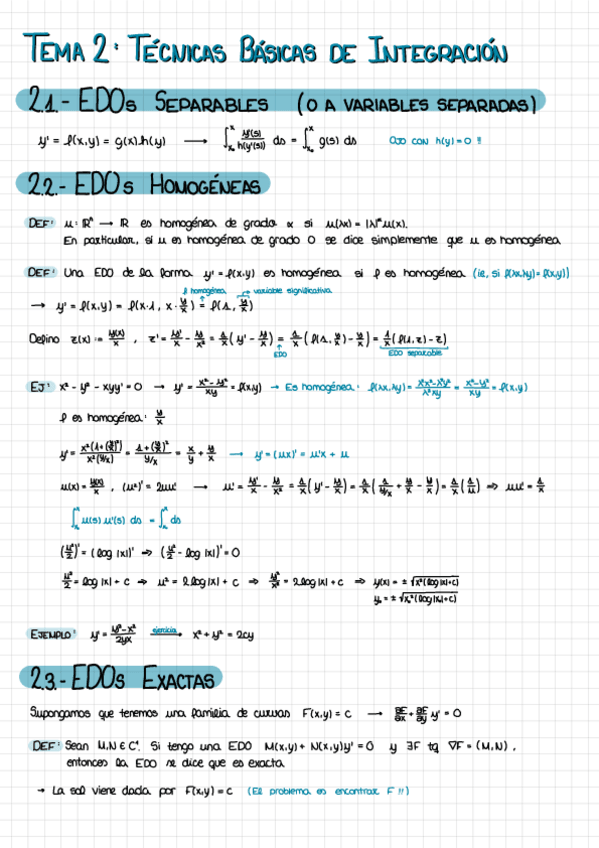 TEMA 2: TÉCNICAS BÁSICAS DE INTEGRACIÓN
2.1.- EDOs SEPARABLES (O A VARIABLES SEPARADAS)
y' = f(x,y) = g(x)·h(y) → ∫_{x₀}^{x} y'(s)/h(y(s)) ds = ∫_{x₀}^{x} g(s) ds OJO CON h(y)=0 !!
2.2.- EDOs HOMOGÉNEAS
DEF: u: ℝⁿ → ℝ es homogénea de grado α si u(λx) = |λ|^α u(x).
En particular, si u es homogénea de grado 0 se dice simplemente que u es homogénea
DEF: Una EDO de la forma y' = f(x,y) es homogénea si f es homogénea (ie, si f(λx,λy)=f(x,y))
f homogénea variable significativa
→ y' = f(x,y) = f(x·1, x·y/x) = f(1, y/x)
Defino z(x) := y(x)/x , z' = y'/x - y/x² = 1/x (y' - y/x) = 1/x (f(1, y/x) - y/x) = 1/x (f(1,z) - z)
EDO EDO separable
EJ: x² - y² - xyy' = 0 → y' = (x² - y²)/(xy) = f(x,y) → Es homogénea: f(λx,λy) = (λ²x² - λ²y²)/(λ²xy) = (x² - y²)/(xy) = f(x,y)
f es homogénea: y/x
→ y' = (ux)' = u'x + u
∫_{x₀}^{x} u(s) u'(s) ds = ∫_{x₀}^{x} ds
(u²/2)' = (log |x|)' ⇒ (u²/2 - log |x|)' = 0
u²/2 = log |x| + c ⇒ u² = 2 log |x| + c ⇒ y²/x² = 2 log |x| + c ⇒ y(x) = ± √(x²(log|x|+c))
EJEMPLO: y' = (y² - x²)/(2yx) ejercicio → x² + y² = 2cy
2.3.- EDOs EXACTAS
Supongamos que tenemos una familia de curvas F(x,y) = C → ∂F/∂x + ∂F/∂y y' = 0
DEF: Sean M,N ∈ C¹. Si tengo una EDO M(x,y) + N(x,y)y' = 0 y ∃F tq ∇F = (M,N) ,
entonces la EDO se dice que es exacta
→ La sol viene dada por F(x,y) = C (El problema es encontrar F !!)